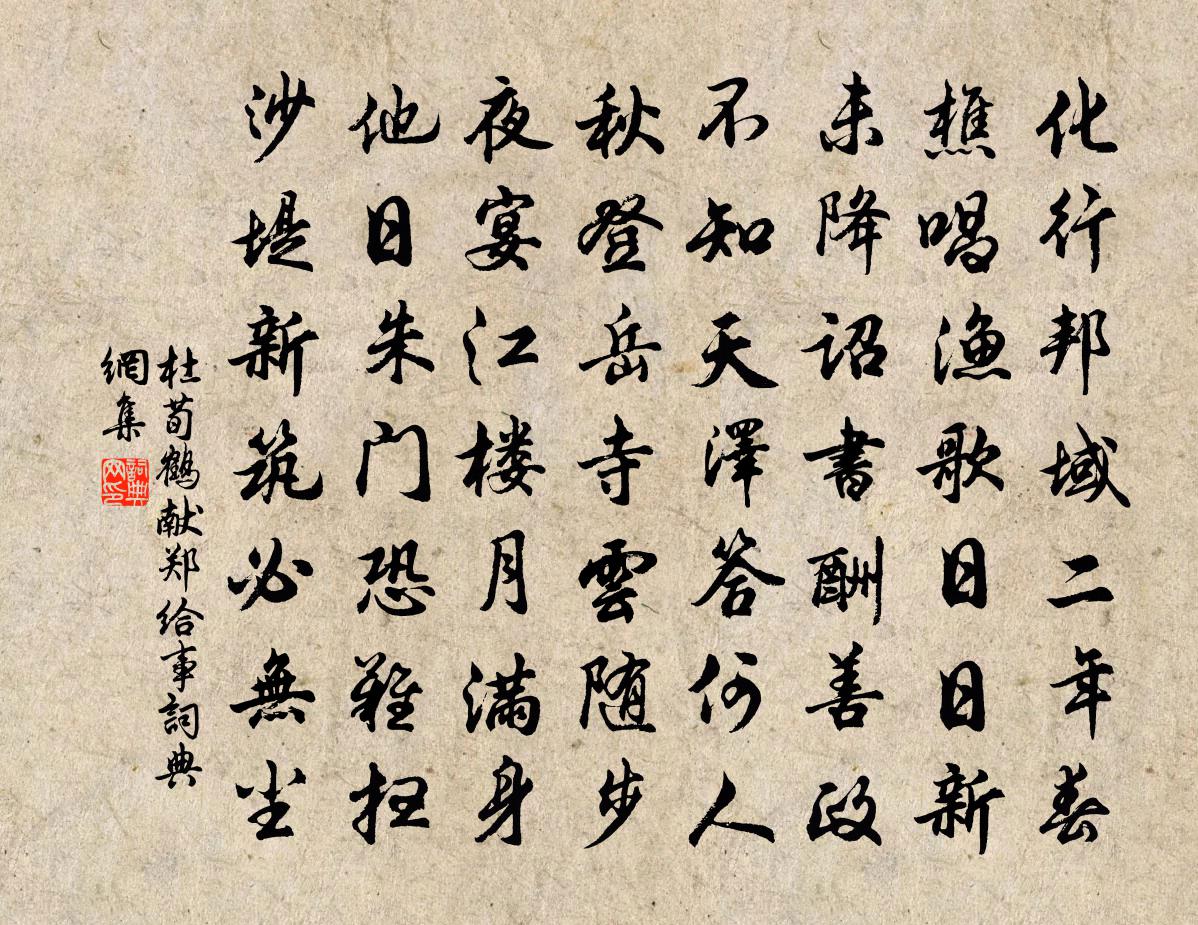 化行邦域二年春
樵唱漁歌日日新
未降詔書酬善政
不知天澤答何人
秋登岳寺雲随步
夜宴江楼月满身
他日朱门恐難扫
沙堤新筑必無尘
杜荀鶴献郑给事詞典
網集
詞典网印